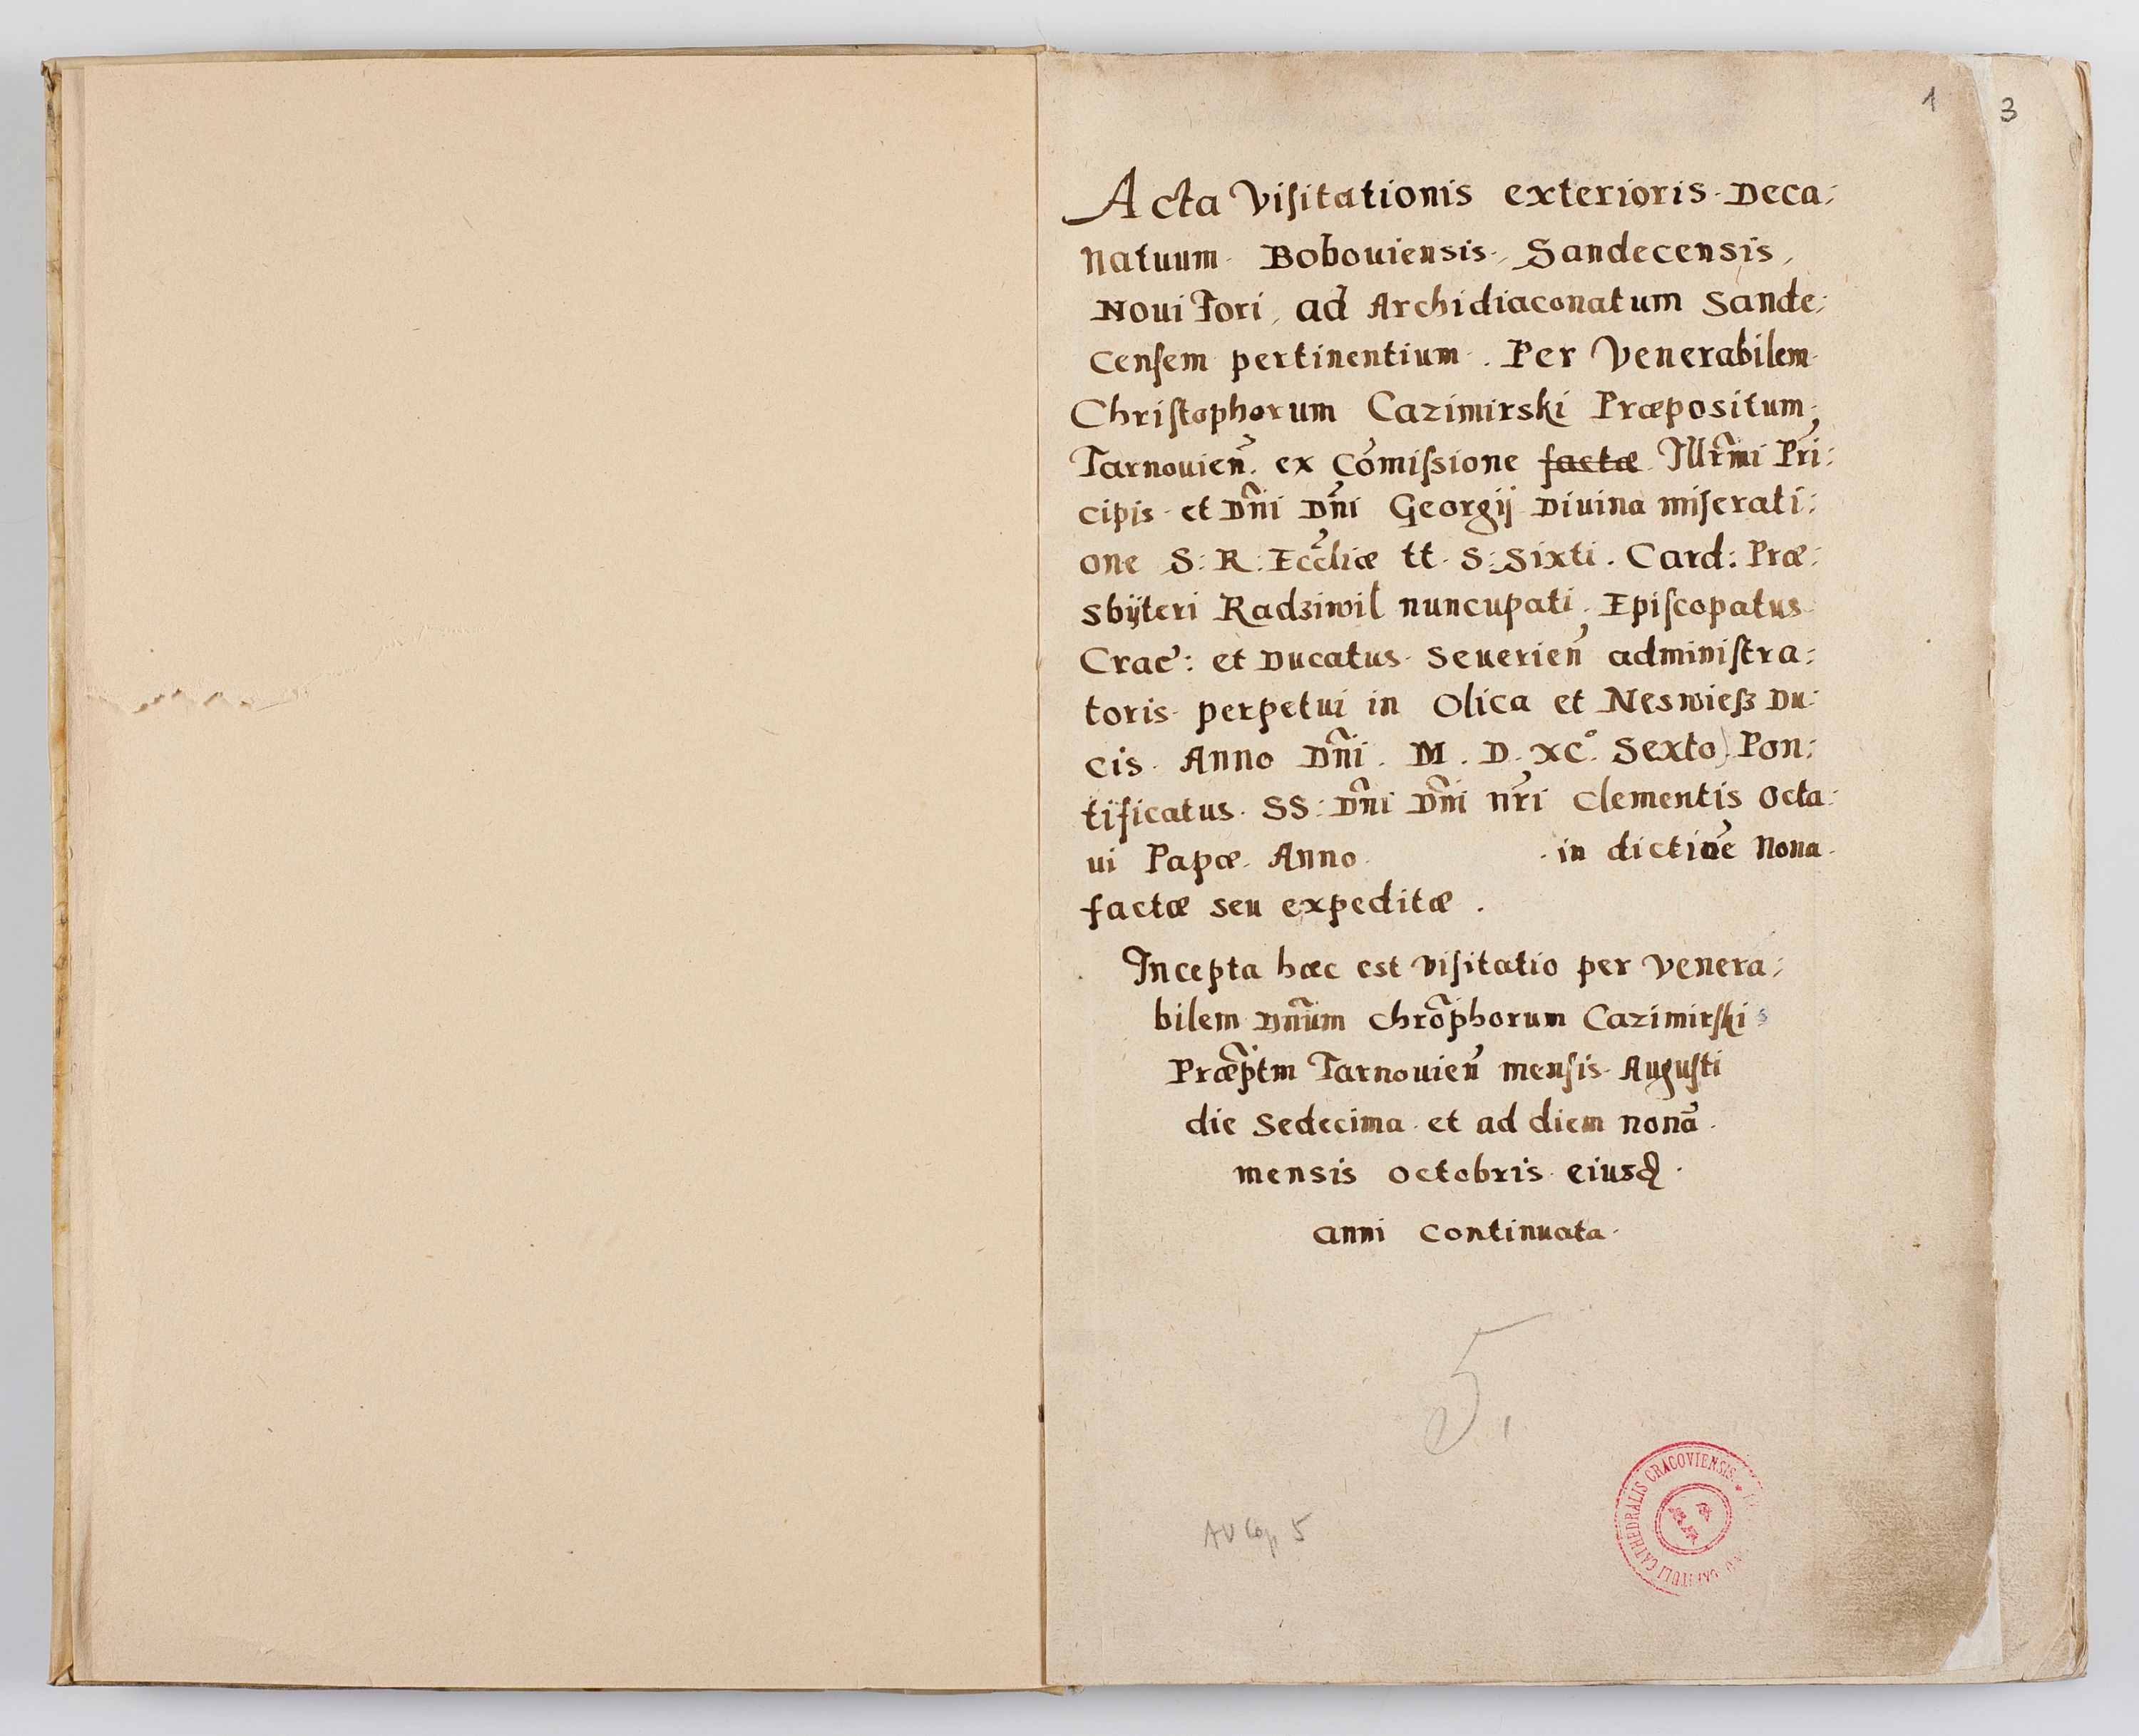 1
3
Acta Visitationis exterioris Deca:
natuum Bobouiensis, Sandecensis,
Noui Fori, ad Archidiaconatum Sande:
censem pertinentium. Per Venerabilem
Christophorum Cazimirski Præpositum
Tarnouien̄. ex Cōmissione factæ Illr̃mi Pri̅:
cipis et Dñi Dñi Georgij Diuina miserati:
one S: R: Eccĺiæ tt. S: Sixti. Card: Præ:
sbÿteri Radziwil nuncupati. Episcopatus
Crac: et Ducatus Seuerien̄ administra:
toris perpetui in Olica et Neswiesz Du:
cis. Anno Dñi. M. D. XC.° Sexto) Pon:
tificatus. SS: Dñi Dñi nr̃i Clementis Octa:
ui Papæ. Anno. in dictiōe Nona.
factæ seu expeditæ.
Incepta hæc est visitatio per venera:
bilem Dñum Chrõphorum Cazimirski
Præp̃tm Tarnouien̄ mensis Augusti
die Sedecima et ad diem nonā.
mensis octobris eiusd.
anni continuata.
5.
AV Cap 5
CAPITULI CATHEDRALIS CRACOVIENSIS